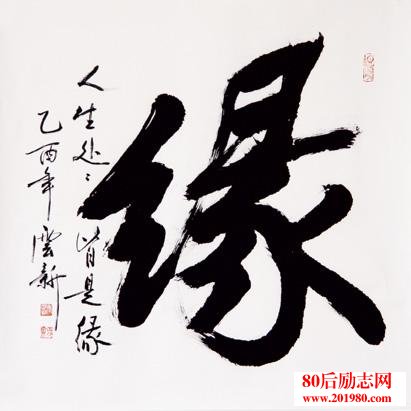 缘
人生处〻皆是缘
乙酉年 雲新
80后励志网
www.201980.com